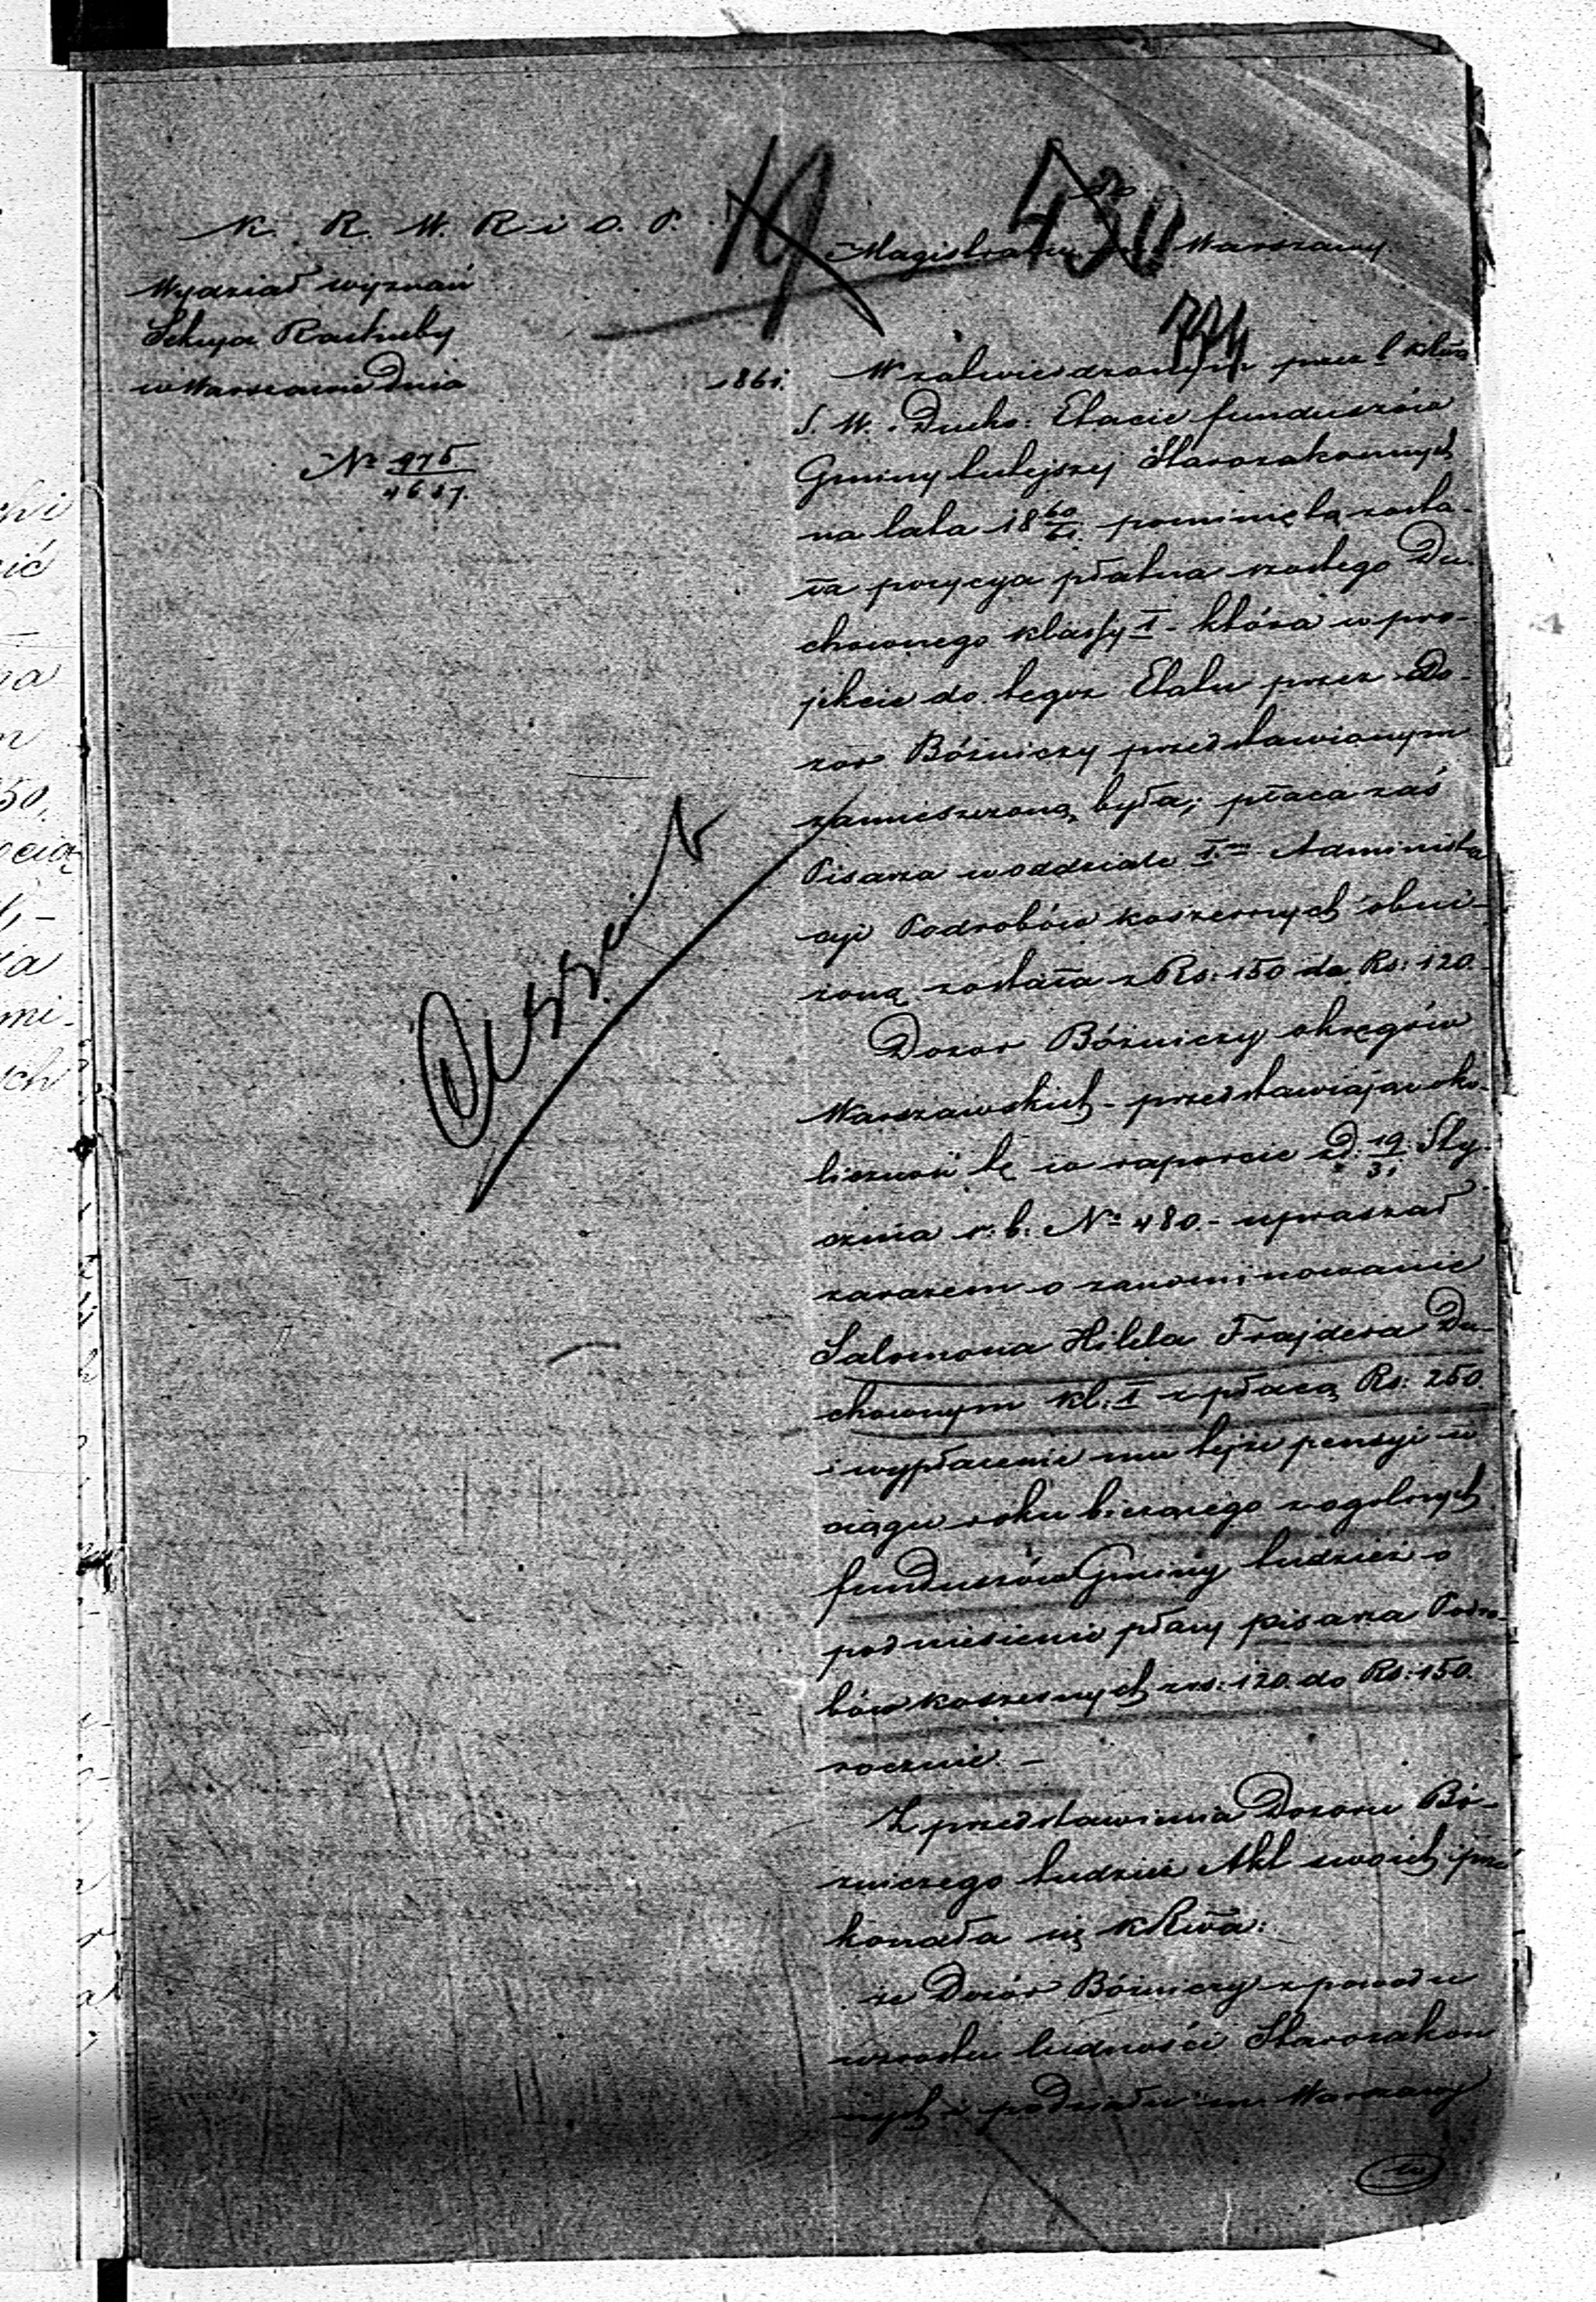 K. R. W. R i O. P.
Wydział wyznań
Sekcya Rachuby
w Warszawie Dnia 1861.
No 975/4637.
19
430
do
Magistratu m. Warszawy
774
W zatwierdzonym przez b. kłwa
S. W. i Ducho: Etacie funduszów
Gminy tutejszej Starozakonnych
na lata 18 60/61. pominiętą zosta-
ła pozycya płatna szóstego Du-
chownego klassy I - która w pro-
jekcie do tegoż Etatu przez Do-
zór Bóżniczy przedstawionym
zamieszczoną była; płaca zaś
Pisarza w oddziale I.m Administra
cyi Podrobów koszernych obni-
żoną została z Rs: 150 do Rs: 120.
Dozór Bóżniczy okręgów
Warszawskich - przedstawiając oko-
liczność tę w raporcie z D. 19/31 Sty-
cznia r. b. No 480. - upraszał
zarazem o zanominowanie
Salomona Hilela Frajdera Du-
chownym kl. I z płacą Rs: 250.
i wypłacenie mu tejże pensyi w
ciągu roku bieżącego z ogólnych
funduszów Gminy tudzież o
podniesienie płacy pisarza Podro-
bów koszernych z rs: 120. do Rs: 150.
rocznie. -
Z przedstawienia Dozoru Bó-
żniczego tudzież Akt swoich prze
konała się kRwa:
że Dozór Bóżniczy z powodu
wzrostu ludności Starozakon
nych i podziału m. Warszawy